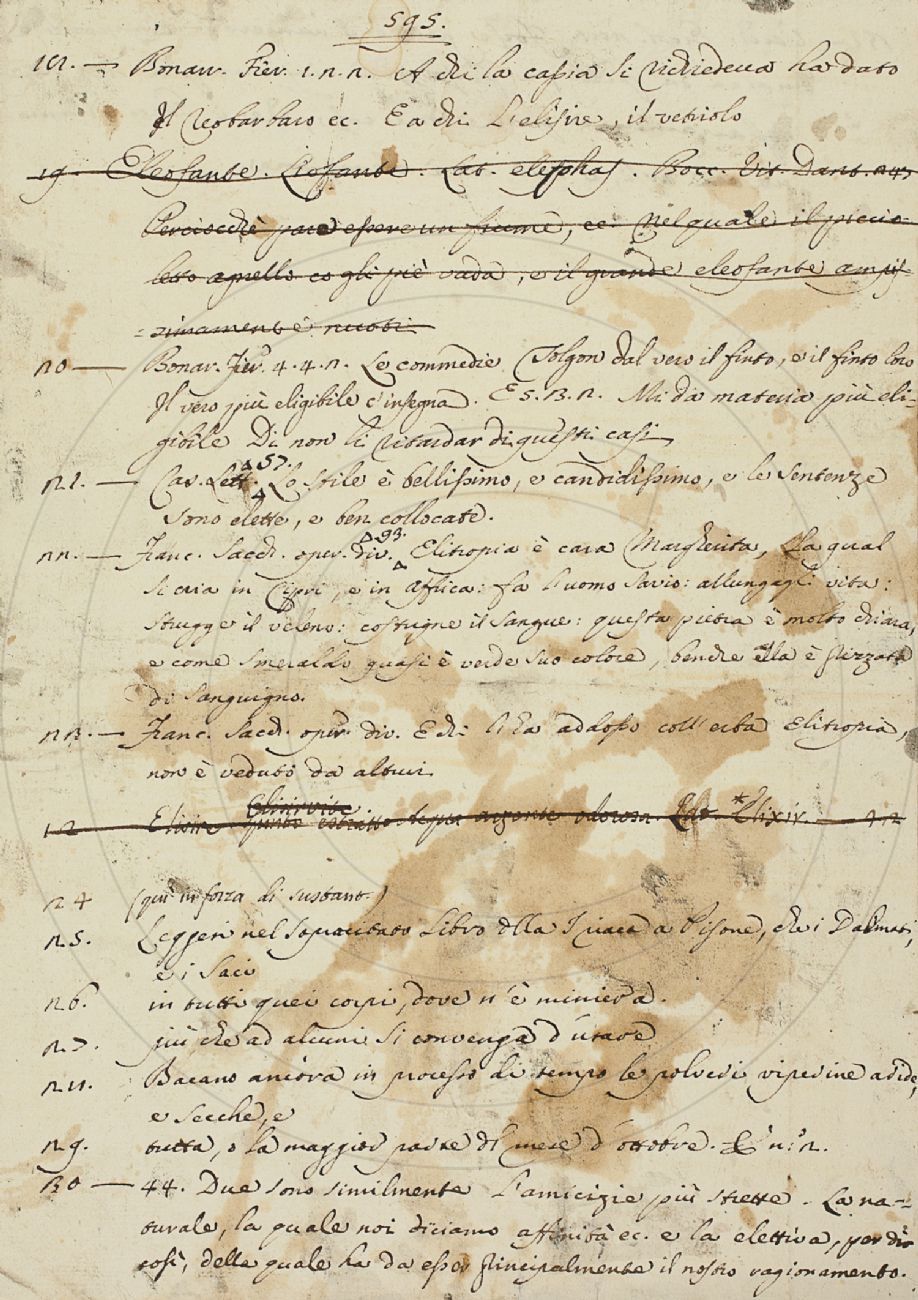 595.
18. — Bonarr. Fier. 1. 2. 2. A chi la cassia si richiedeva ha dato
Il reobarbaro ec. E a chi l'elisire, il vetriolo
19. Eleofante. Liofante. Lat. elephas. Bocc. Vit. Dant. 247
Perciocchè pare essere un fiume, ec. Nel quale il piccio-
letto agnello co gli piè vada, e il grande eleofante ampis-
simamente nuoti.
20 — Bonar. Fier. 4. 4. 2. Le commedie Tolgon dal vero il finto, e il finto loro
Il vero più eligibile c'insegna. E 5. 3. 2. Mi dà materia più eli-
gibile Di non li ritardar di questi casi
21. — Cav. Lett. 57. Lo stile è bellissimo, e candidissimo, e le sentenze
sono elette, e ben collocate.
22. — Franc. Sacch. oper. div. 93. Elitropia è cara Margherita, La qual
si cria in Cipri, e in Affrica: fa l'uomo savio: allungagli vita:
strugge il veleno: costrigne il sangue: questa pietra è molto chiara,
e come smeraldo quasi è verde suo colore, benchè ella è sprizzata
di sanguigno.
23. — Franc. Sacch. oper. div. E chi l'ha addosso coll'erba Elitropia,
non è veduto da altrui
Elisirvite
12 Elisire estratto Acqua arzente odorosa. Lat. * Elixir. — 12
24 (qui in forza di sustant.)
25. Leggeri nel soprascitato Libro della Triaca a Pisone, che i Dalmati,
e i Saci
26. in tutti quei corpi, dove n'è miniera.
27. più che ad alcuni si convenga d'usare
28. Bacano ancora in processo di tempo le polveri viperine aride,
e secche, e
29. tutta, o la maggior parte di mese d'ottobre. E n: 2.
30 — 44. Due sono similmente l'amicizie più strette. La na-
turale, la quale noi diciamo affinità ec. e la elettiva, per dir
così, della quale ha da esser principalmente il nostro ragionamento.